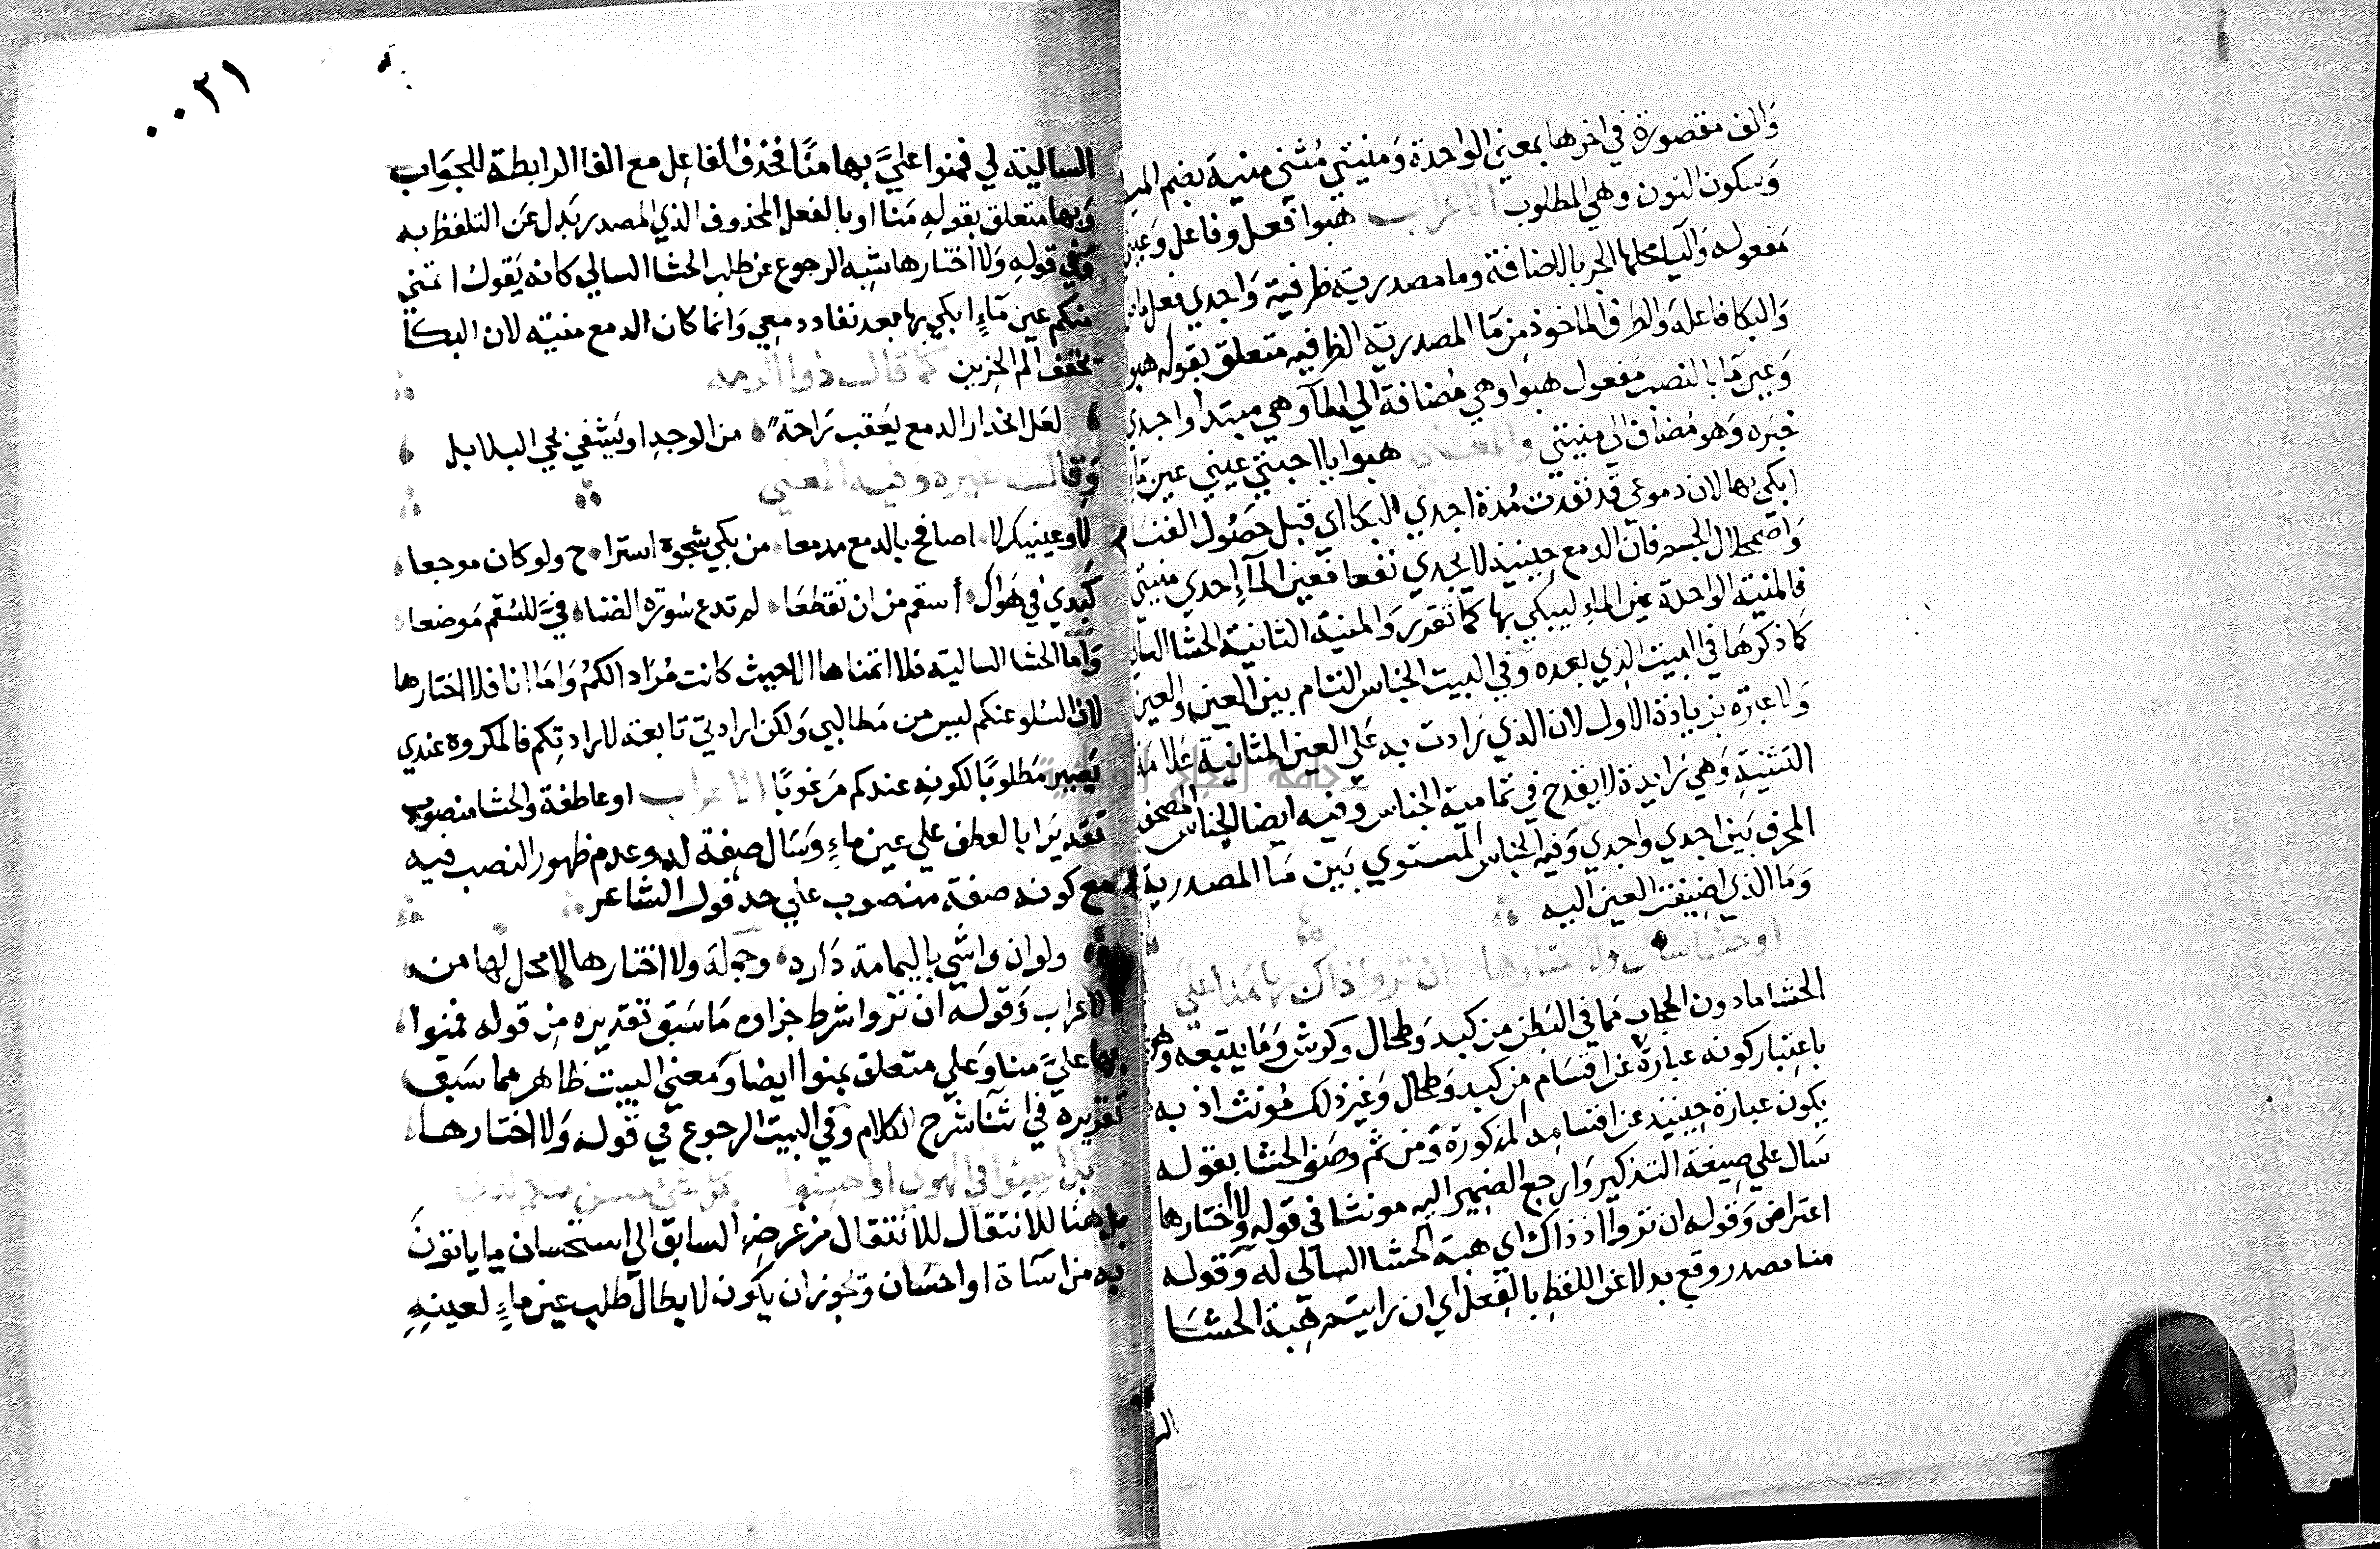 والف مقصورة في اخرها بمعني الواحدة ومنيتي مثني منية بضم الميم
وسكون النون وهي المطلوب الاعراب هبوا فعل وفاعل وعين
مفعوله واليا محلها الجر بالاضافة وما مصدرية ظرفية واجدي فعل ماض
والبكا فاعله والظرف الماخوذ من ما المصدرية الظرفيه متعلق بقوله هبوا
وعين ما بالنصب مفعول هبوا وهي مضافة الي الما وهي مبتدا واحدي
خبره وهو مضاف الي منيتي والمعني هبوا يا احبتي عيني عين ماء
ابكي بها لان دموعي قد نفدت مدة اجدي البكا اي قبل حصول الفنا
واضمحلال الجسم فان الدمع حينيذ لا يجدي نفعا فعين المآء احدي منيتي
فالمنية الواحدة عين الماء ليبكي بها كما تقرر والمنية الثانية الحشا السالي
كما ذكرها في البيت الذي بعده وفي البيت الجناس التام بين العين والعين
ولا عبرة بزيادة الاول لان الذي زادت به علي العين الثانية علامة
التثنية وهي زايدة لا يقدح في تمامية الجناس وفيه ايضا الجناس المصحف
المحرف بين اجدي واحدي وفيه الجناس المستوي بين ما المصدرية
وما الذي اضيفت العين اليه
او حشا سال ولا اختارها ان تروا ذاك بها منا علي
الحشا ما دون الحجاب مما في البطن من كبد وطحال وكرش وما يتبعه وهو
باعتبار كونه عبارة عن اقسام من كبد وطحال وغير ذلك مونث اذ به
يكون عبارة حينيذ عن اقسامه المذكورة ومن ثم وصف الحشا بقوله
سال علي صيغة التذكير وارجع الضمير اليه مونثا في قوله ولا اختارها
اعتراض وقوله ان تروا اذ ذاك اي هبة الحشا السالي له وقوله
منا مصدر وقع بدلا عن اللفظ بالفعل اي ان رايتم هبة الحشا
٠٠٣١
السالية لي فمنوا علي بها منا فحذف الفاعل مع الفا الرابطة للجواب
وبها متعلق بقوله منا او بالفعل المحذوف الذي المصدر بدل عن التلفظ به
وفي قوله ولا اختارها شبه الرجوع عن طلب الحشا السالي كانه يقول اتمني
منكم عين ماء ابكي بها بعد نفاد دمعي وانما كان الدمع منيته لان البكا
يخفف الم الحزين كما قال ذوا الرمه
لعل انحدار الدمع يعقب راحة من الوجد او يشفي نجي البلابل
وقال غيره وفيه المعني
لا وعينيك لا اصافح بالدمع مدمعا من بكي شجوه استراح ولو كان موجعا
كبدي في هواك أسقم من ان تقطعا لم تدع سورة الضنا في للسقم موضعا
وأما الحشا السالية فلا اتمناها الا حيث كانت مرادا لكم واما انا فلا اختارها
لان السلو عنكم ليس من مطالبي ولكن ارادتي تابعة لارادتكم فالمكروه عندي
يصير مطلوبا لكونه عندكم مرغوبا الاعراب او عاطفة والحشا منصوب
تقديرا بالعطف علي عين ماء وسال صفة له وعدم ظهور النصب فيه
مع كونه صفة منصوب علي حد قول الشاعر
ولو ان واشي باليمامة داره وجملة ولا اختارها لا محل لها من
الاعراب وقوله ان تروا شرط جزاوه ما سبق تقديره من قوله فمنوا
بها علي منا وعلي متعلق بمنوا ايضا ومعني البيت ظاهر مما سبق
تقديره في اثنآ شرح الكلام وفي البيت الرجوع في قوله ولا اختارها
بل اسيئوا في الهوي او احسنوا كل شئ حسن منكم لدي
بل هنا للانتقال للانتقال من غرضه السابق الي استحسان ما ياتون
به من اساة او احسان وتجوز ان يكون لابطال طلب عين ماء لعينه